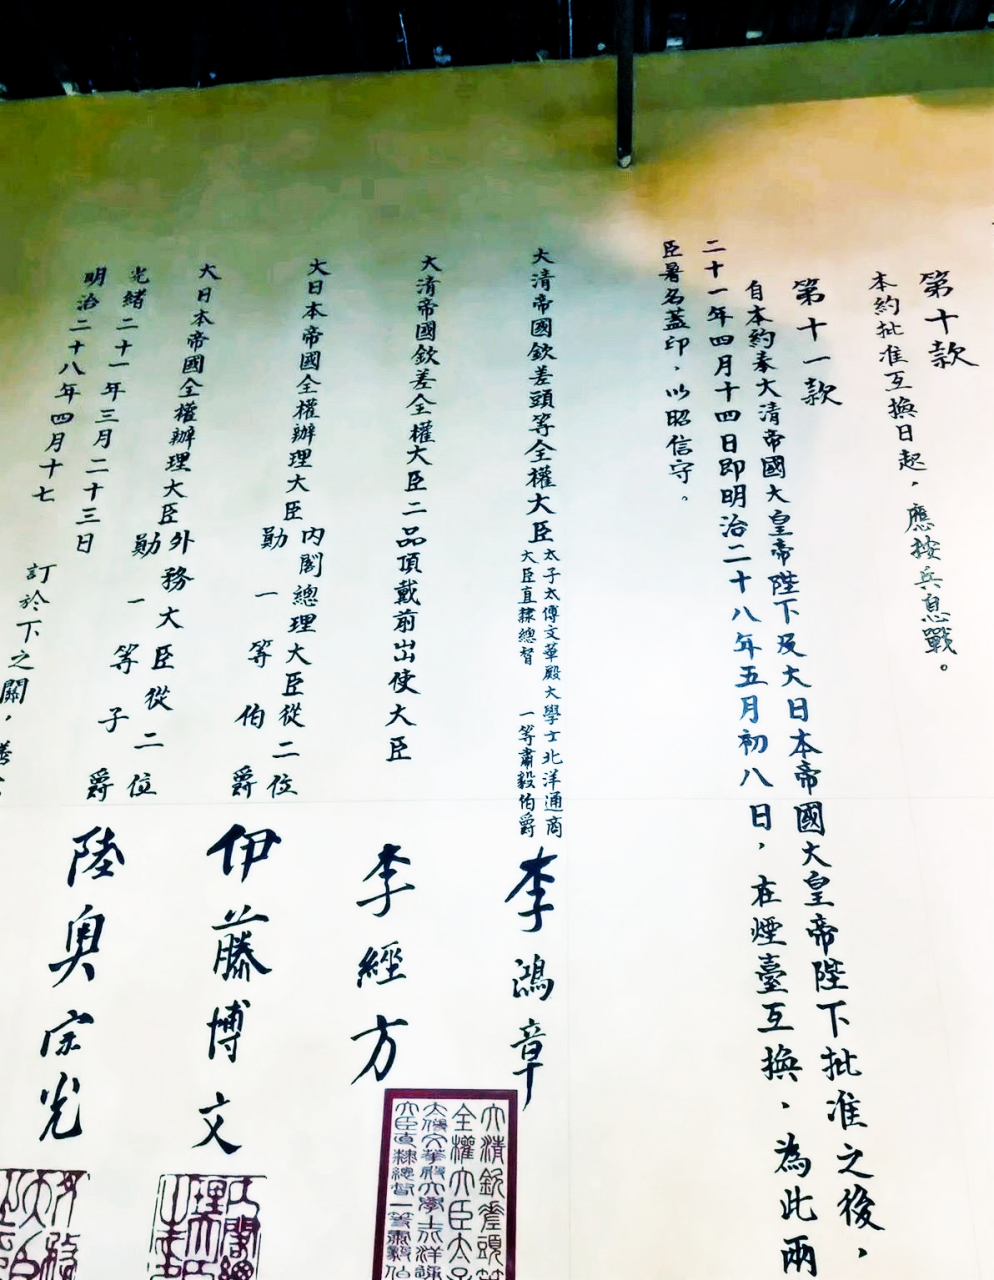 第十款
本約批准互換日起，應按兵息戰。
第十一款
自本約奉大清帝國大皇帝陛下及大日本帝國大皇帝陛下批准之後，
二十一年四月十四日即明治二十八年五月初八日，在煙臺互換、為此兩
臣署名蓋印，以昭信守。
大清帝國欽差頭等全權大臣
太子太傅文華殿大學士北洋通商
大臣直隸總督 一等肅毅伯爵
李鴻章
大清帝國欽差全權大臣二品頂戴前出使大臣
李經方
大日本帝國全權辦理大臣
內閣總理大臣從二位
勛一等伯爵
伊藤博文
大日本帝國全權辦理大臣
外務大臣從二位
勛一等子爵
陸奧宗光
光緒二十一年三月二十三日
明治二十八年四月十七
訂於下之關，繕
大清欽差頭等
全權大臣太子
太傅文華殿大學士北洋通
大臣直隸總督一等肅毅伯
內閣總
理大臣
外務
大臣